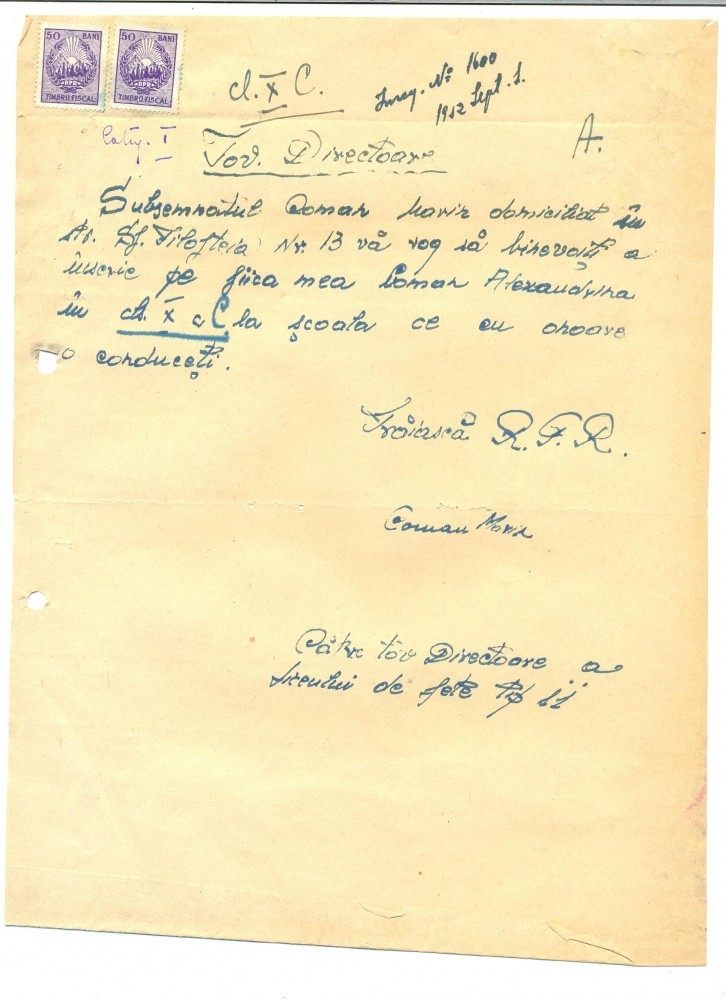 50 BANI 50 BANI
RPR RPR
TIMBRU FISCAL TIMBRU FISCAL
cl. X C.
Inreg. No 1600
1952 Sept. 1.
Catg. I
A.
Tov. Directoare
Subsemnatul Coman Marin domiciliat în
str. Sf. Filofteia Nr. 13 vă rog să binevoiți a
înscrie pe fiica mea Coman Alexandrina
în cl. X a C la școala ce cu onoare
o conduceți.
Trăiască R.P.R.
Coman Marin
Către tov Directoare a
liceului de fete